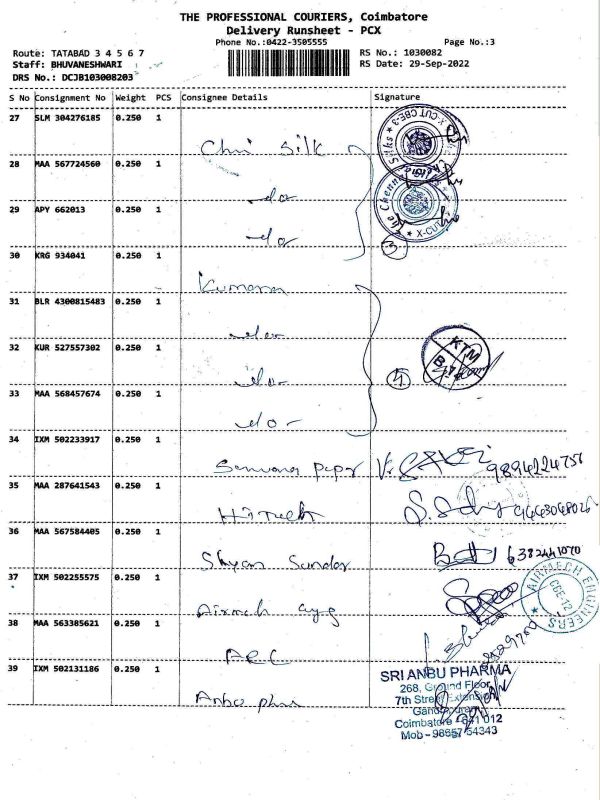 THE PROFESSIONAL COURIERS, Coimbatore
Delivery Runsheet - PCX
Phone No.:0422-3505555 Page No.:3
Route: TATABAD 3 4 5 6 7 RS No.: 1030082
Staff: BHUVANESHWARI RS Date: 29-Sep-2022
DRS No.: DCJB103008203
S No Consignment No Weight PCS Consignee Details Signature
27 SLM 304276185 0.250 1
X-CUT CBE-3
Silk
28 MAA 567724560 0.250 1
do
The Chennai Silks
29 APY 662013 0.250 1
do
X-CUT
3
30 KRG 934041 0.250 1
Kumaran
31 BLR 4300815483 0.250 1
do
KTM
32 KUR 527557302 0.250 1
do
33 MAA 568457674 0.250 1
do
34 IXM 502233917 0.250 1
9894224756
35 MAA 287641543 0.250 1
9443068026
36 MAA 567584405 0.250 1
Shyam Sundar 6382441070
37 IXM 502255575 0.250 1
AIRMECH ENGINEERS
CBE-12
38 MAA 563385621 0.250 1
39 IXM 502131186 0.250 1
SRI ANBU PHARMA
268, Ground Floor,
7th Street Extension
Gandhipuram
Coimbatore - 641 012
Mob - 98657 54343